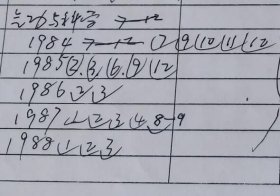 1984 7-12 7 9 10 11 12
1985 2. 3. 6. 9 12
1986 2 3
1987 1 2 3 4. 8-9
1988 1 2 3